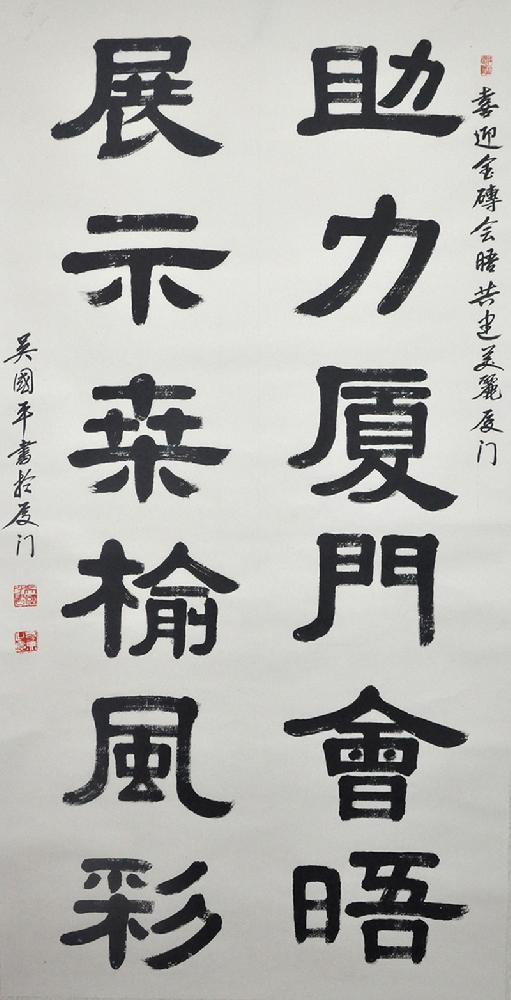 喜迎金磚会晤共建美麗厦门
助力厦門會晤
展示桒榆風彩
吴國平書於厦门